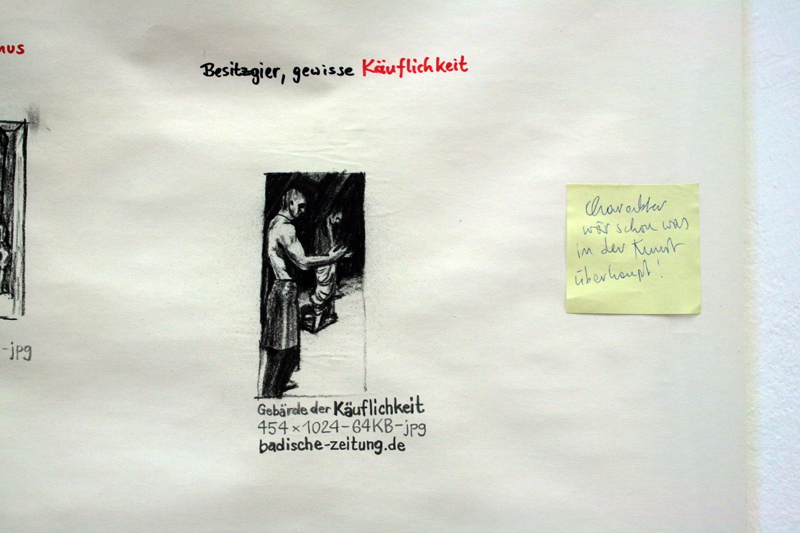 mus
Besitzgier, gewisse Käuflichkeit
-jpg
Gebärde der Käuflichkeit
454×1024-64KB-jpg
badische-zeitung.de
Charakter
wär schon was
in der Kunst
überhaupt!